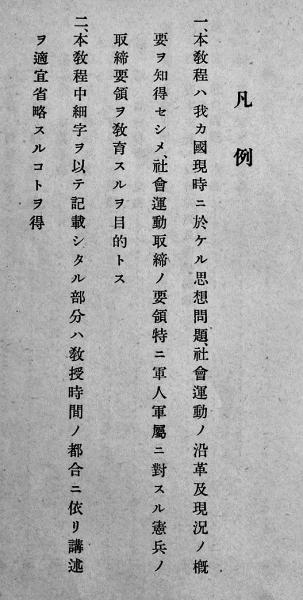 凡例
一、本敎程ハ我カ國現時ニ於ケル思想問題、社會運動ノ沿革及現況ノ概
要ヲ知得セシメ、社會運動取締ノ要領特ニ軍人軍屬ニ對スル憲兵ノ
取締要領ヲ敎育スルヲ目的トス
二、本敎程中細字ヲ以テ記載シタル部分ハ敎授時間ノ都合ニ依リ講述
ヲ適宜省略スルコトヲ得